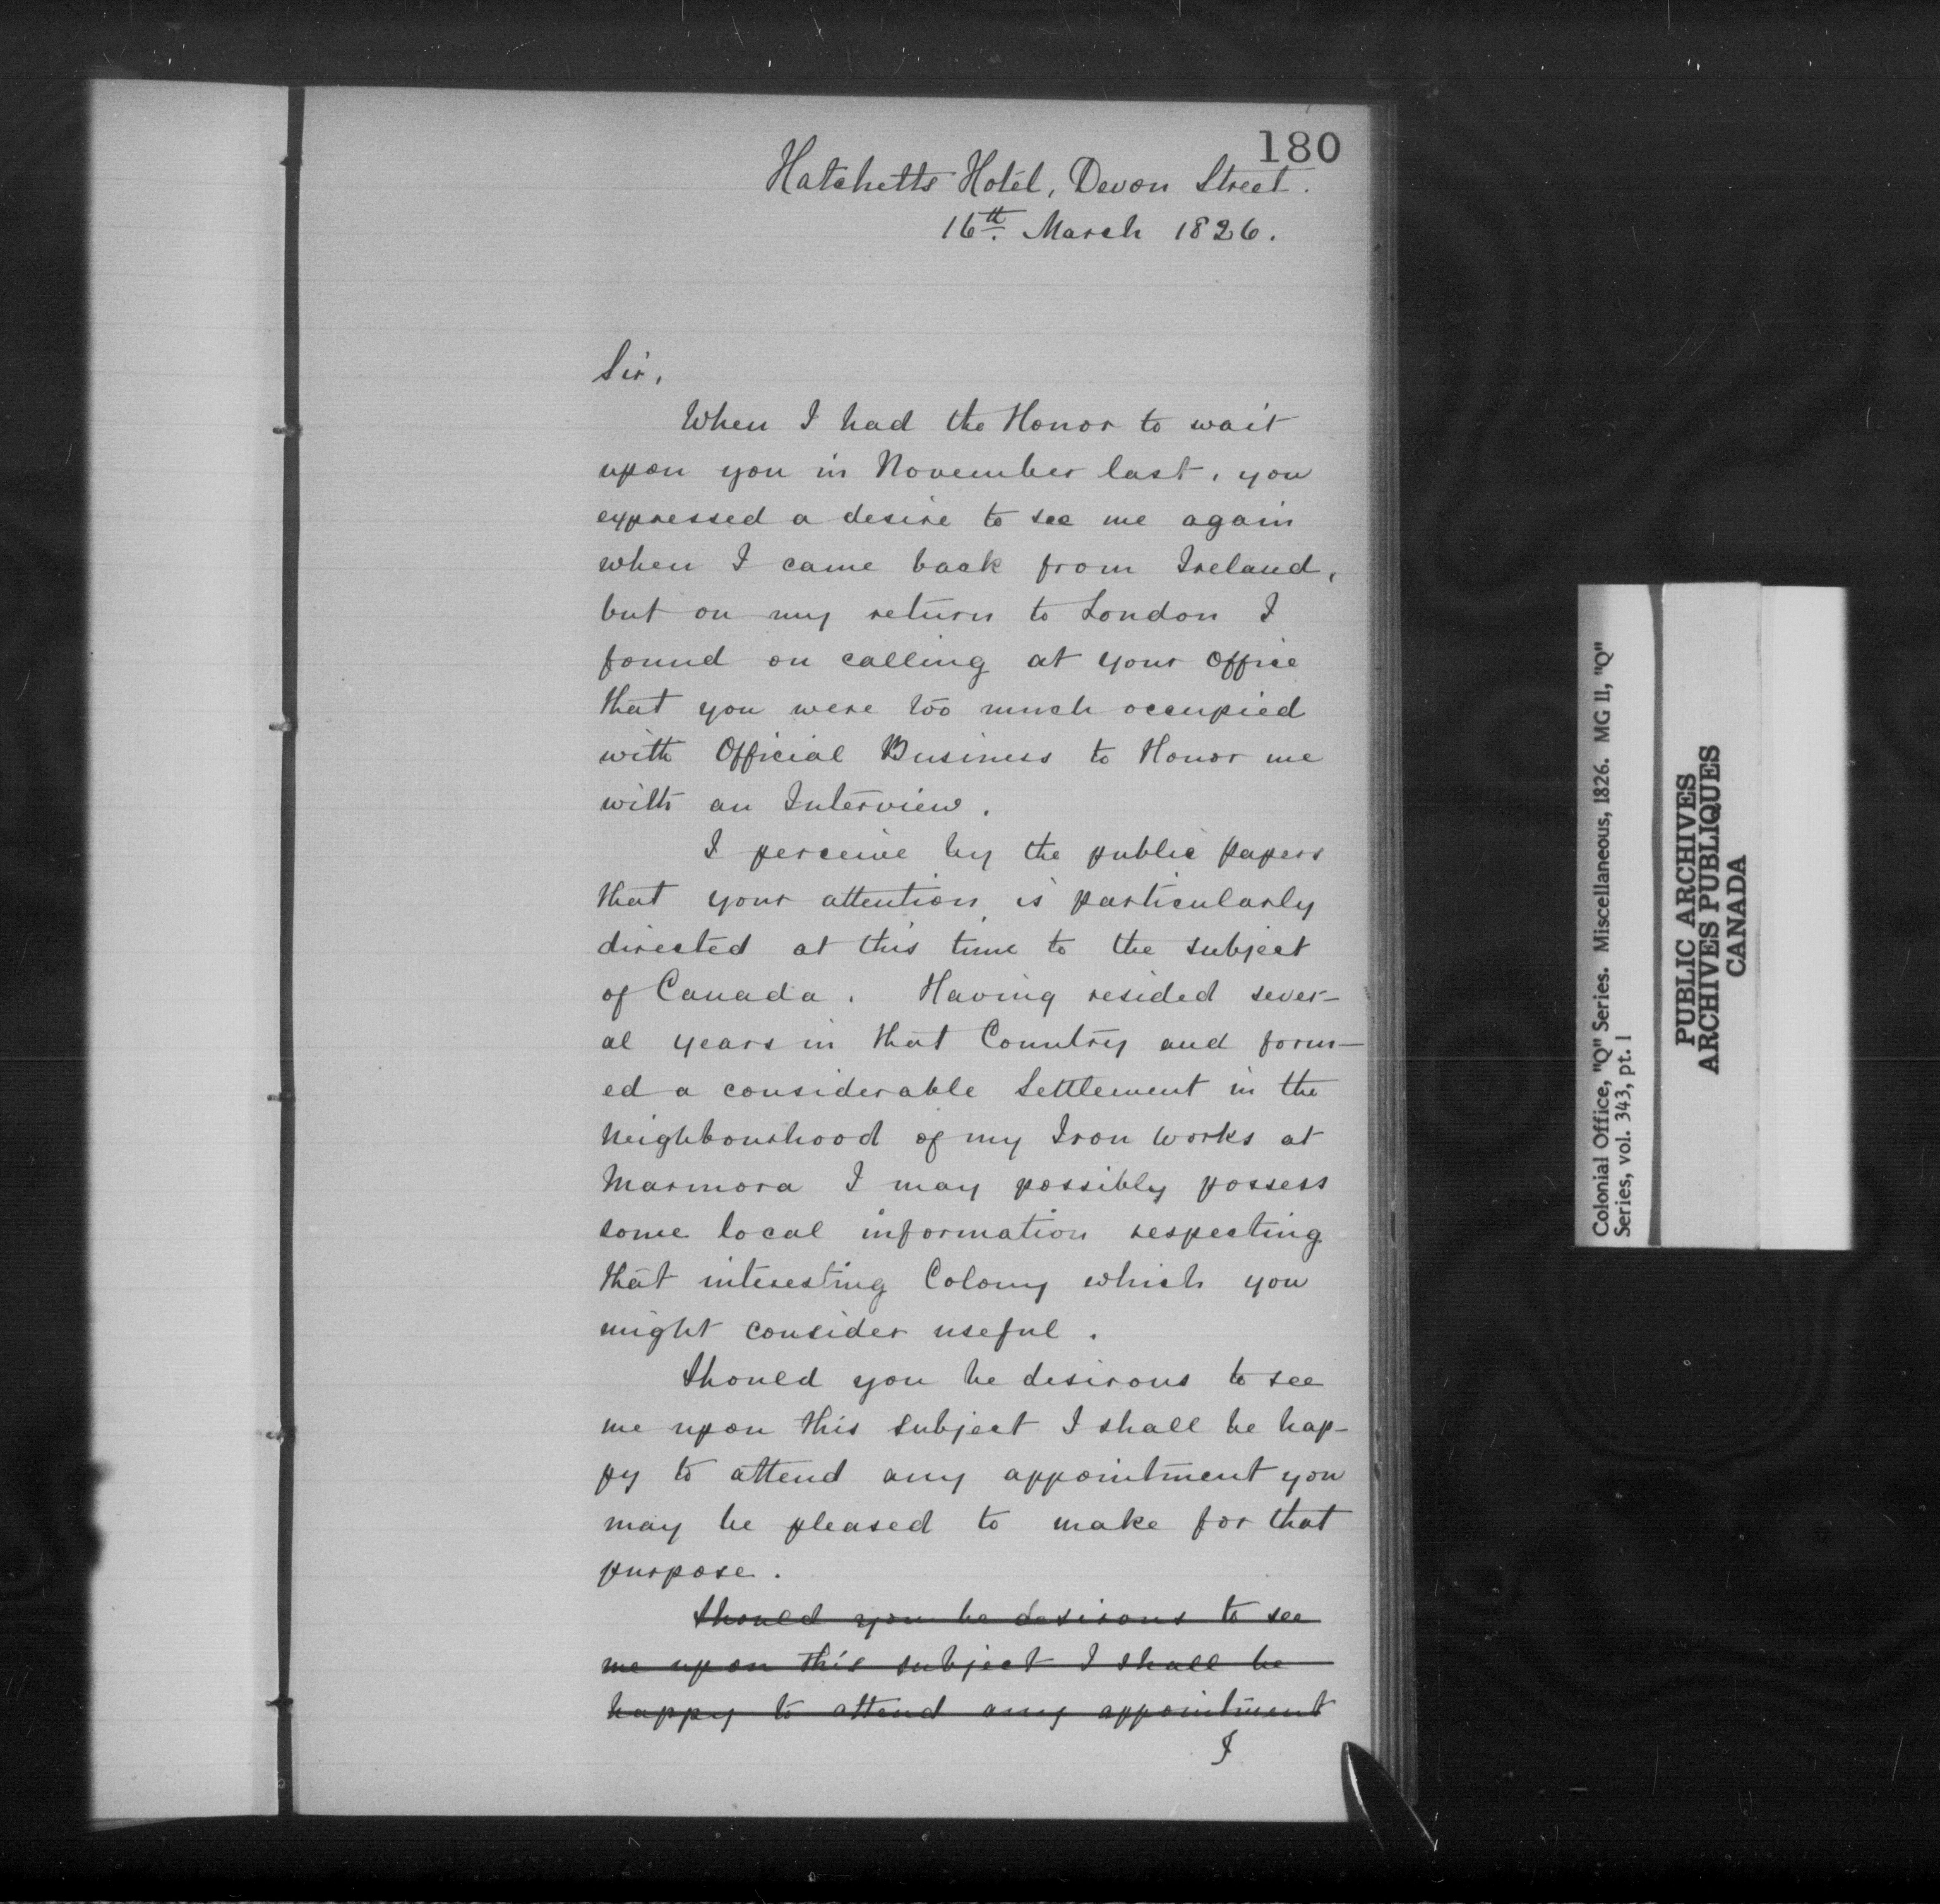 180
Hatchetts Hotel, Devon Street.
16th. March 1826.
Sir,
When I had the Honor to wait
upon you in November last, you
expressed a desire to see me again
when I came back from Ireland,
but on my return to London I
found on calling at your Office
that you were too much occupied
with Official Business to Honor me
with an Interview.
I perceive by the public papers
that your attention, is particularly
directed at this time to the subject
of Canada. Having resided sever-
al years in that Country and form-
ed a considerable Settlement in the
Neighbourhood of my Iron Works at
Marmora I may possibly possess
some local information respecting
that interesting Colony which you
might consider useful.
Should you be desirous to see
me upon this subject I shall be hap-
py to attend any appointment you
may be pleased to make for that
purpose.
Should you be desirous to see
me upon this subject I shall be
happy to attend any appointment
I
Colonial Office, "Q" Series. Miscellaneous, 1826. MG 11, "Q"
Series, vol. 343, pt. 1
PUBLIC ARCHIVES
ARCHIVES PUBLIQUES
CANADA